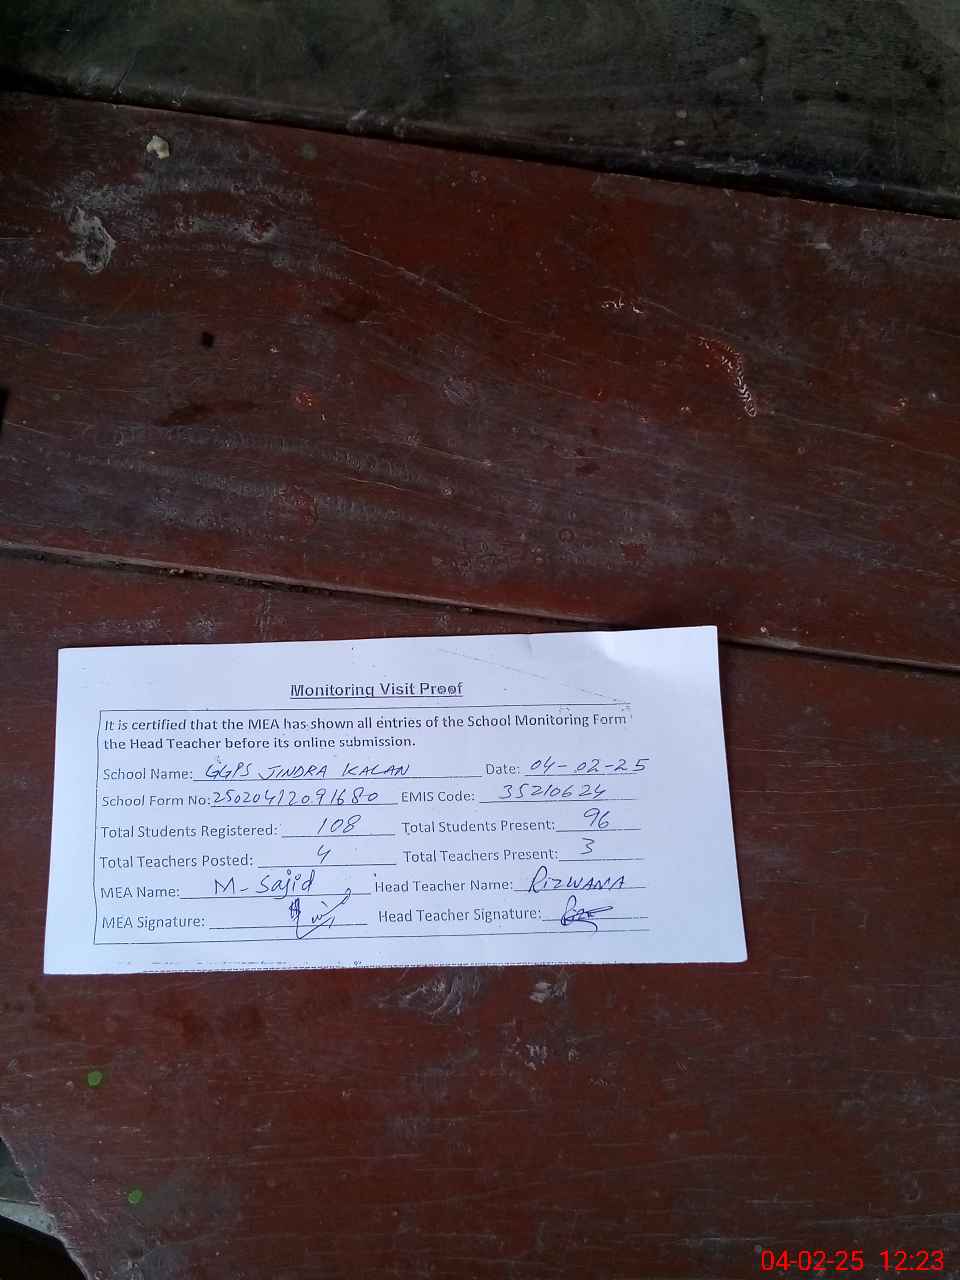 Monitoring Visit Proof
It is certified that the MEA has shown all entries of the School Monitoring Form
the Head Teacher before its online submission.
School Name: GGPS JINDRA KALAN Date: 04-02-25
School Form No: 25020412091680 EMIS Code: 35210624
Total Students Registered: 108 Total Students Present: 96
Total Teachers Posted: 4 Total Teachers Present: 3
MEA Name: M-Sajid Head Teacher Name: RIZWANA
MEA Signature: Head Teacher Signature:
04-02-25 12:23